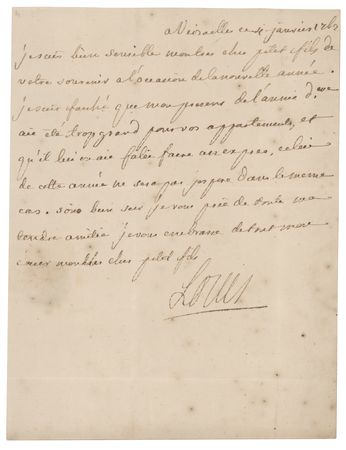 a Versailles ce 5 janvier 1762
je suis bien sensible mon tres cher petit fils de
votre souvenir a l'occasion de la nouvelle année.
je suis faché que mon present de l'année d.re
aie été trop grand pour vos appartements, et
qu'il lui en aie falu faire un expres, celui
de cette année ne sera pas j'espere dans le meme
cas. soiés bien sur je vous prie de toute ma
tendre amitié je vous embrasse de tout mon
cœur mon tres cher petit fils
Louis